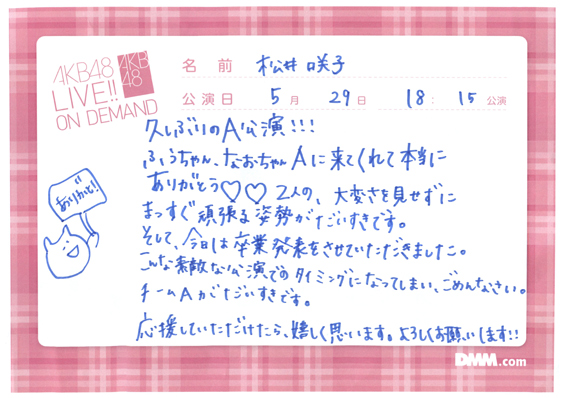 AKB48
LIVE!!
ON DEMAND
AKB
48
名前 松井咲子
公演日 5月 29日 18:15公演
久しぶりのA公演!!!
ふぅちゃん、なおちゃんAに来てくれて本当に
ありがとう♡♡ 2人の、大変さを見せずに
まっすぐ頑張る姿勢がだいすきです。
そして、今日は卒業発表をさせていただきました。
こんな素敵な公演でのタイミングになってしまい、ごめんなさい。
チームAがだいすきです。
応援していただけたら、嬉しく思います。よろしくお願いします!!
ありがと!
DMM.com